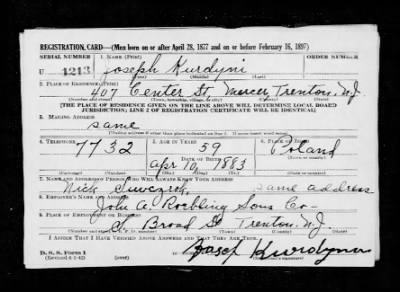 REGISTRATION CARD—(Men born on or after April 28, 1877 and on or before February 16, 1897)
SERIAL NUMBER 1. NAME (Print) ORDER NUMBER
U 1213 Joseph Kurdyni
(First) (Middle) (Last)
2. PLACE OF RESIDENCE (Print)
407 Center St. Mercer, Trenton N.J.
(Number and street) (Town, township, village, or city) (County) (State)
[THE PLACE OF RESIDENCE GIVEN ON THE LINE ABOVE WILL DETERMINE LOCAL BOARD
JURISDICTION; LINE 2 OF REGISTRATION CERTIFICATE WILL BE IDENTICAL]
3. MAILING ADDRESS
same
(Mailing address if other than place indicated on line 2. If same insert word same)
4. TELEPHONE 5. AGE IN YEARS 6. PLACE OF BIRTH
7732 59 Poland
DATE OF BIRTH
Apr 10, 1883
(Exchange) (Number) (Mo.) (Day) (Yr.) (State or country)
7. NAME AND ADDRESS OF PERSON WHO WILL ALWAYS KNOW YOUR ADDRESS
Nick same address
8. EMPLOYER'S NAME AND ADDRESS
John A. Roebling Sons Co—
9. PLACE OF EMPLOYMENT OR BUSINESS
S. Broad St Trenton N.J.
(Number and street or R. F. D. number) (Town) (County) (State)
I AFFIRM THAT I HAVE VERIFIED ABOVE ANSWERS AND THAT THEY ARE TRUE.
D. S. S. Form 1
(Revised 4-1-42)